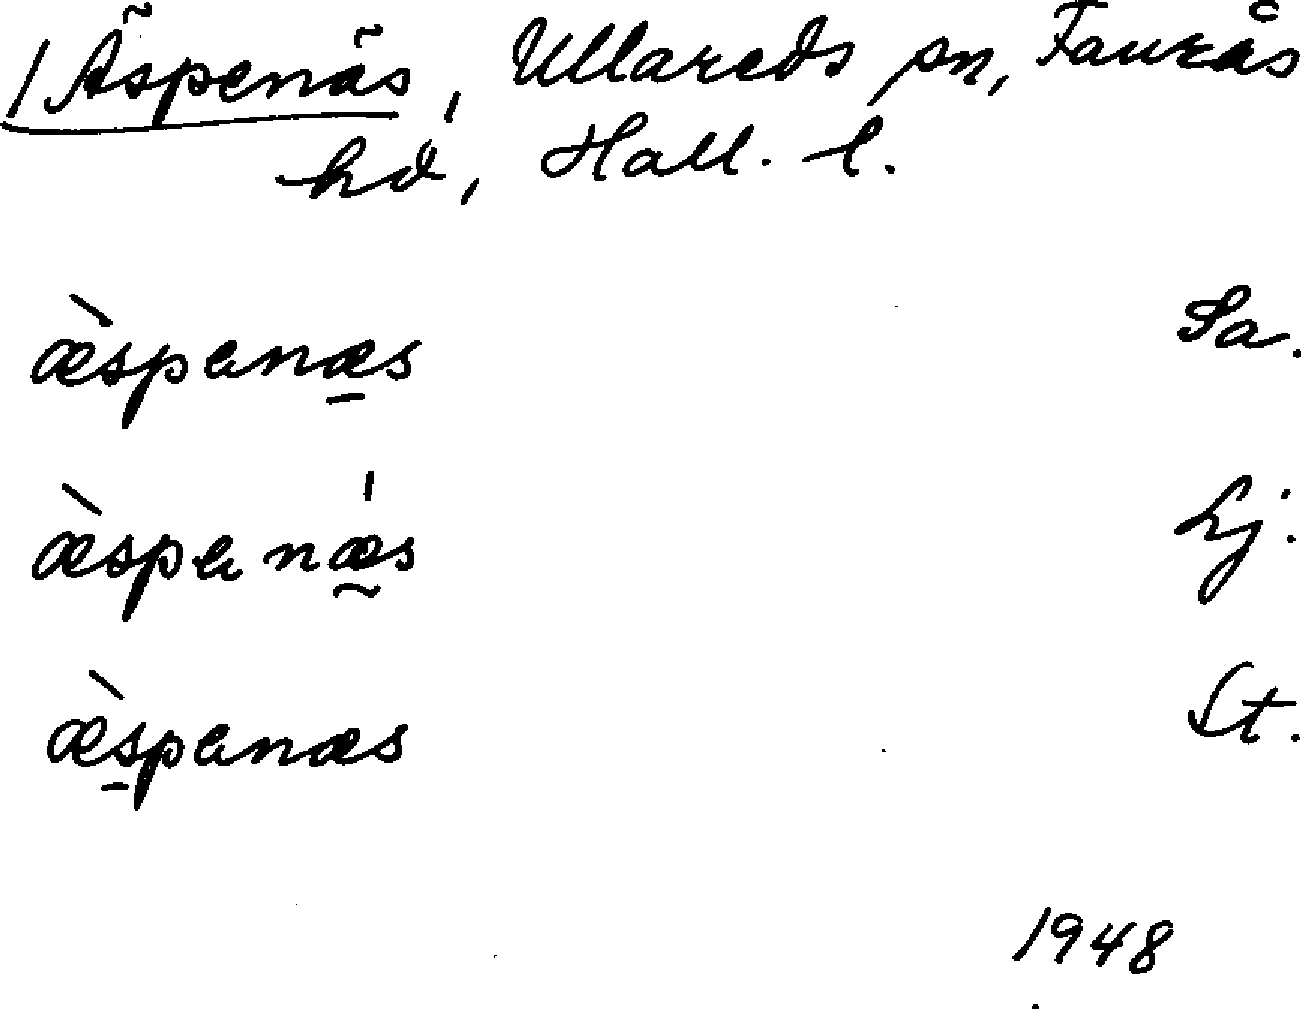 1 Äspenäs, Ullareds sn, Faurås
hd, Hall. l.
æ̀spenæ̱s Sa.
æ̀spenǽ̰s Lj.
æ̀s̱penæs St.
1948